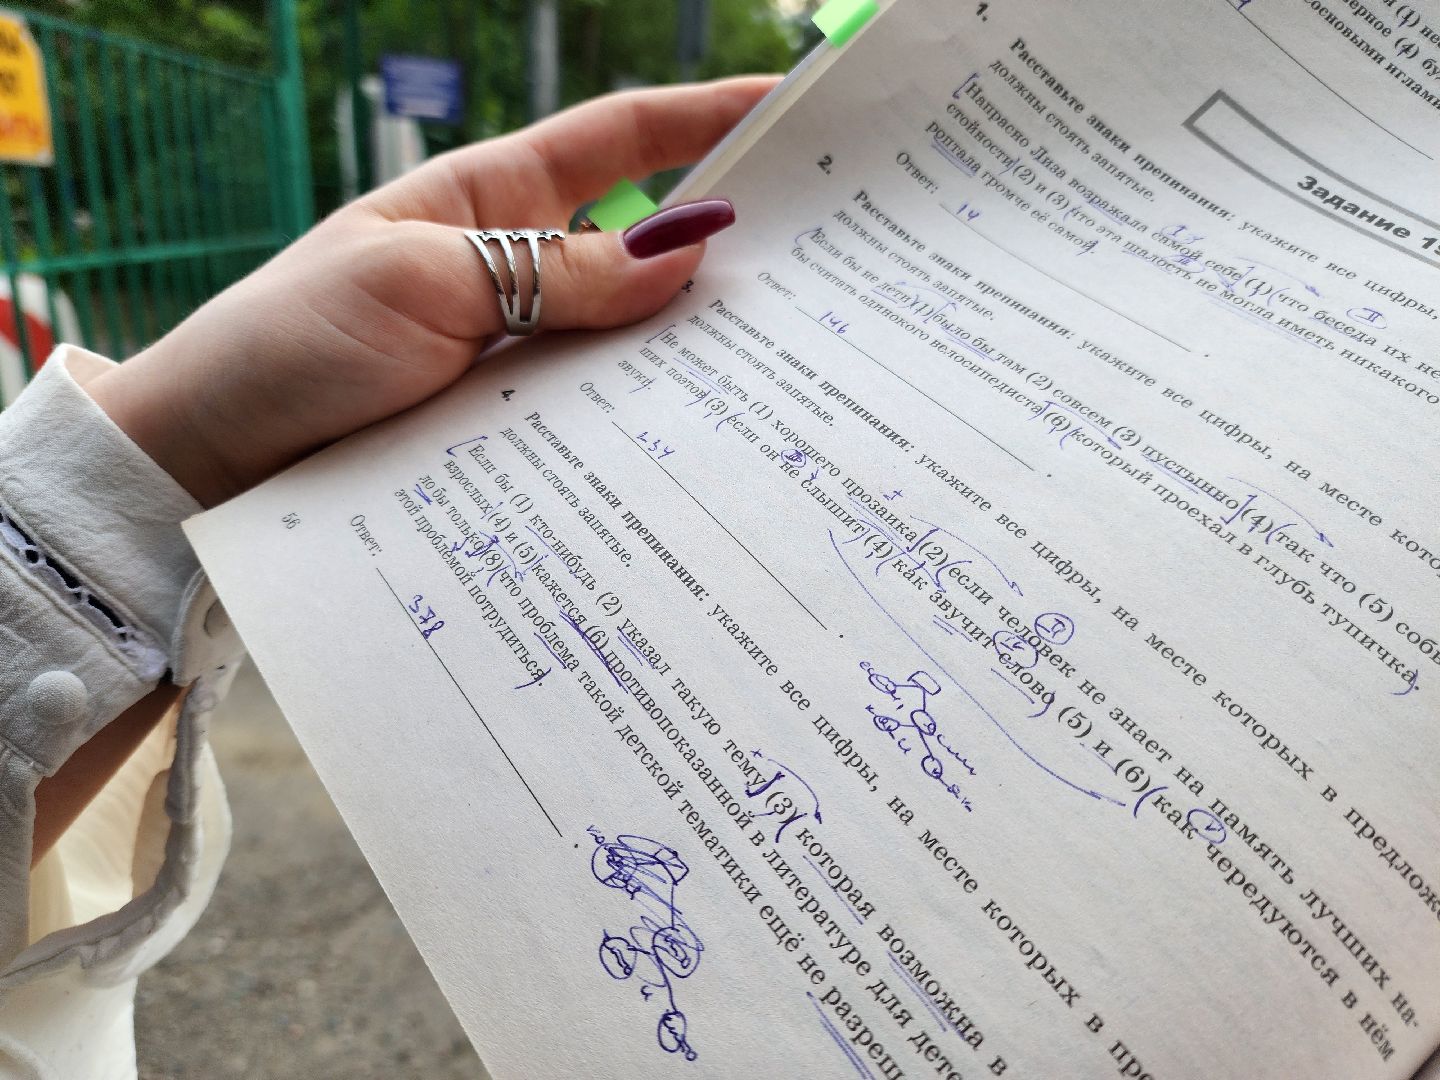 1.
Задание 19
Расставьте знаки препинания: укажите все цифры,
должны стоять запятые.
Напрасно Лиза возражала самой себе (1) что беседа их не
стойности (2) и (3) что эта шалость не могла иметь никакого
роптала громче её самой.
Ответ:
14
2.
Расставьте знаки препинания: укажите все цифры, на месте кото
должны стоять запятые.
Если бы не дети (1) было бы там (2) совсем (3) пустынно (4) так что (5) собы
бы считать одинокого велосипедиста (6) который проехал в глубь тупичка.
Ответ:
146
3.
Расставьте знаки препинания: укажите все цифры, на месте которых в предложе
должны стоять запятые.
Не может быть (1) хорошего прозаика (2) если человек не знает на память лучших на-
ших поэтов (3) если он не слышит (4) как звучит слово (5) и (6) как чередуются в нём
звуки.
Ответ:
234
4.
Расставьте знаки препинания: укажите все цифры, на месте которых в пре
должны стоять запятые.
Если бы (1) кто-нибудь (2) указал такую тему (3) которая возможна в
взрослых (4) и (5) кажется (6) противопоказанной в литературе для дете
ло бы только (8) что проблема такой детской тематики ещё не разреш
этой проблемой потрудиться.
Ответ:
378
56